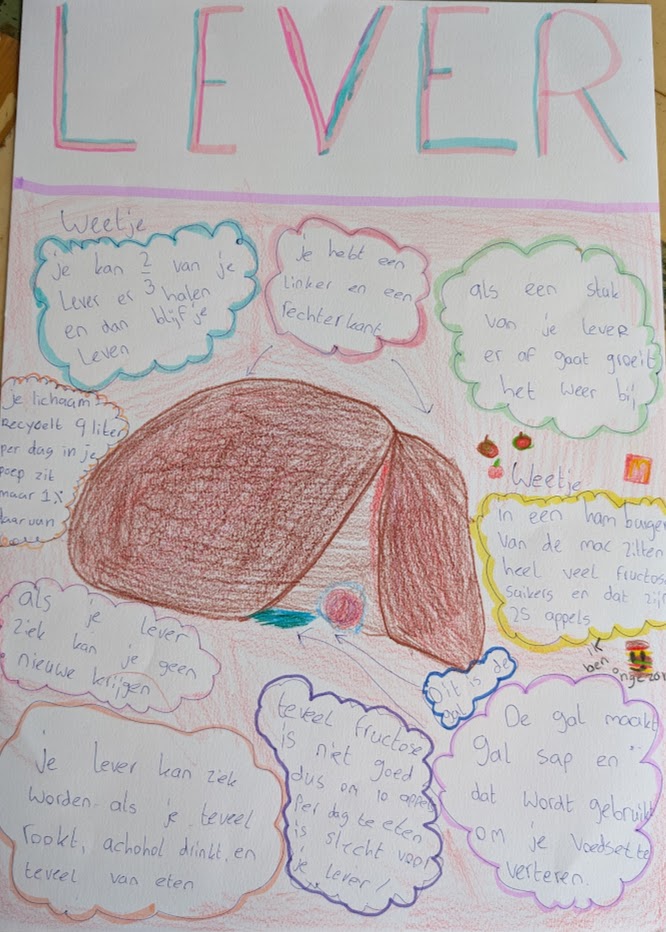 LEVER
Weetje
je kan 2/3 van je
Lever er halen
en dan blijf je
Leven
Je hebt een
Linker en een
rechterkant
als een stuk
van je lever
er af gaat groeit
het weer bij
Je lichaam
recycelt 9 liter
per dag in je
poep zit
maar 1%
daarvan
M
Weetje
in een hamburger
van de mac zitten
heel veel fructose
suikers en dat zijn
25 appels
ik
ben
als je lever
ziek kan je geen
nieuwe krijgen
Dit is de
gal
je lever kan ziek
worden als je teveel
rookt, achohol drinkt, en
teveel van eten
teveel fructose
is niet goed
dus om 10 appels
per dag te eten
is slecht voor
je lever!
De gal maakt
gal sap en
dat wordt gebruikt
om je voedsel te
verteren.